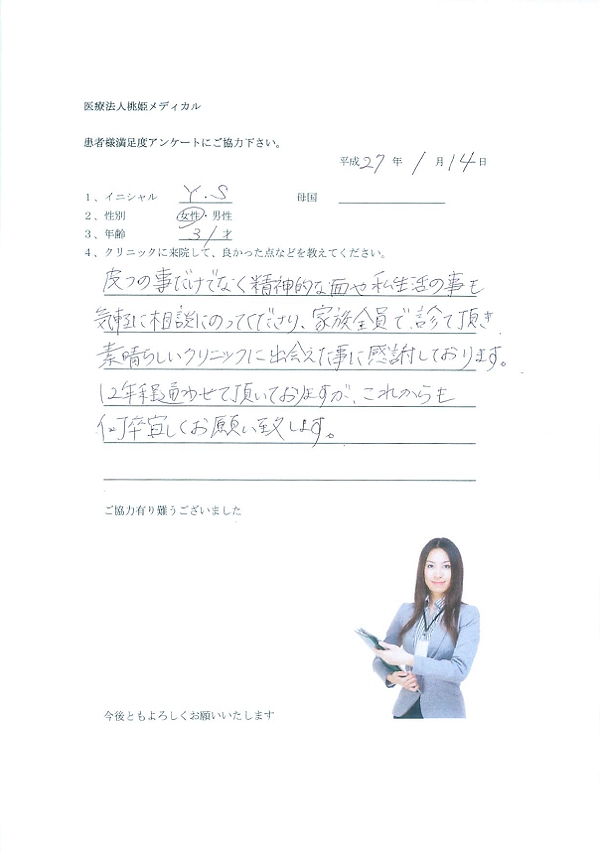 医療法人桃姫メディカル
患者様満足度アンケートにご協力下さい。
平成 27 年 1 月 14 日
1、イニシャル Y.S 母国
2、性別 女性・男性
3、年齢 31 才
4、クリニックに来院して、良かった点などを教えてください。
皮フの事だけでなく精神的な面や私生活の事も
気軽に相談にのってくださり、家族全員で診て頂き
素晴らしいクリニックに出会えた事に感謝しております。
12年程通わせて頂いておりますが、これからも
何卒宜しくお願い致します。
ご協力有り難うございました
今後ともよろしくお願いいたします